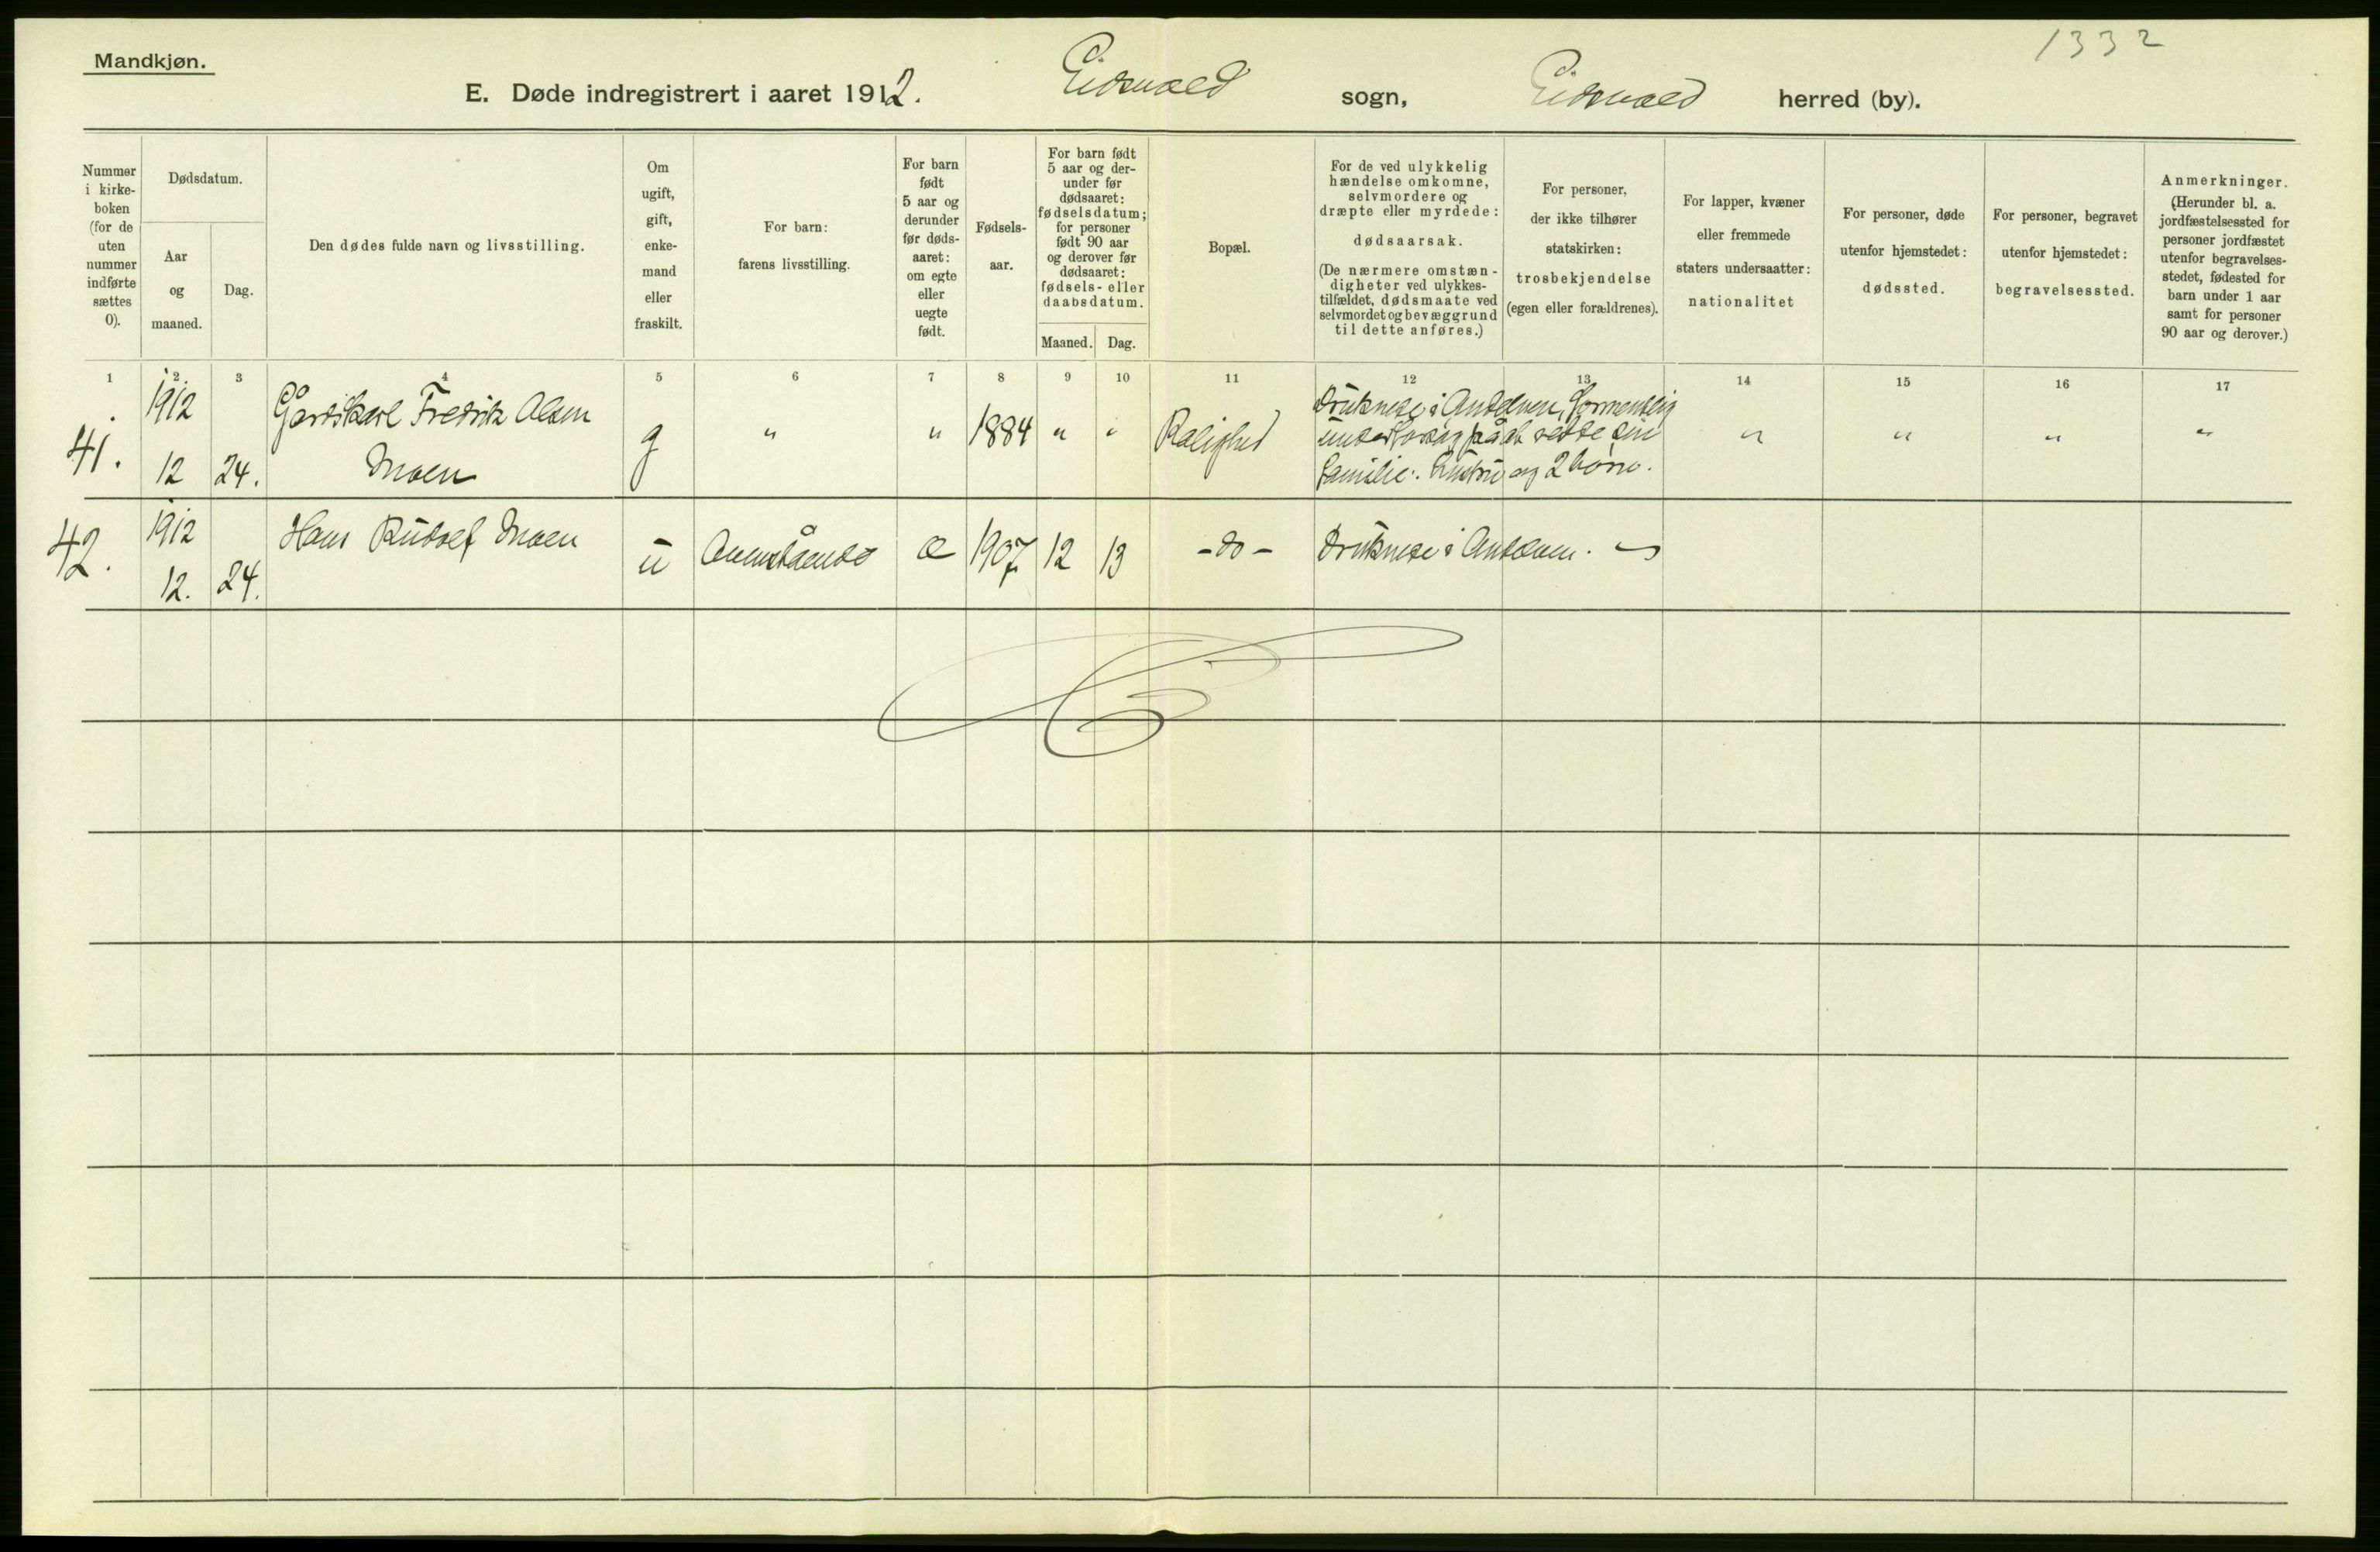 Mandkjøn.
1332
E. Døde indregistrert i aaret 1912. Eidsvold sogn, Eidsvold herred (by).
Nummer
i kirke-
boken
(for de
uten
nummer
indførte
sættes
0).
Dødsdatum.
Aar
og
maaned.
Dag.
Den dødes fulde navn og livsstilling.
Om
ugift,
gift,
enke-
mand
eller
fraskilt.
For barn:
farens livsstilling.
For barn
født
5 aar og
derunder
før døds-
aaret:
om egte
eller
uegte
født.
Fødsels-
aar.
For barn født
5 aar og der-
under før
dødsaaret:
fødselsdatum;
for personer
født 90 aar
og derover før
dødsaaret:
fødsels- eller
daabsdatum.
Maaned. Dag.
Bopæl.
For de ved ulykkelig
hændelse omkomne,
selvmordere og
dræpte eller myrdede:
dødsaarsak.
(De nærmere omstæn-
digheter ved ulykkes-
tilfældet, dødsmaate ved
selvmordet og bevæggrund
til dette anføres.)
For personer,
der ikke tilhører
statskirken:
trosbekjendelse
(egen eller forældrenes).
For lapper, kvæner
eller fremmede
staters undersaatter:
nationalitet
For personer, døde
utenfor hjemstedet:
dødssted.
For personer, begravet
utenfor hjemstedet:
begravelsessted.
Anmerkninger.
(Herunder bl. a.
jordfæstelsessted for
personer jordfæstet
utenfor begravelses-
stedet, fødested for
barn under 1 aar
samt for personer
90 aar og derover.)
1 2 3 4 5 6 7 8 9 10 11 12 13 14 15 16 17
41.
1912
12 24.
Gårdskarl Fredrik Olsen
Moen
g
"
"
1884 " "
Rolighed
Druknede i Andelven, formentlig
under forsøg på at redde sin
familie: hustru og 2 børn.
" " " "
42.
1912
12. 24.
Hans Rudolf Moen
u
Ovenstående
æ
1907 12 13
- do -
Druknede i Andelven.